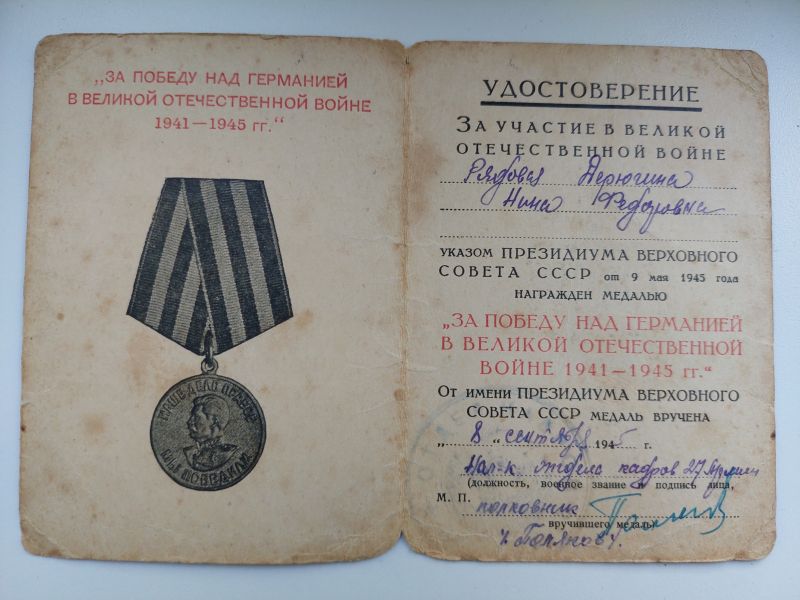 „ЗА ПОБЕДУ НАД ГЕРМАНИЕЙ
В ВЕЛИКОЙ ОТЕЧЕСТВЕННОЙ ВОЙНЕ
1941—1945 гг.“
НАШЕ ДЕЛО ПРАВОЕ
МЫ ПОБЕДИЛИ
УДОСТОВЕРЕНИЕ
ЗА УЧАСТИЕ В ВЕЛИКОЙ
ОТЕЧЕСТВЕННОЙ ВОЙНЕ
Рядовая Дерюгина
Нина Федоровна
УКАЗОМ ПРЕЗИДИУМА ВЕРХОВНОГО
СОВЕТА СССР от 9 мая 1945 года
НАГРАЖДЕН МЕДАЛЬЮ
„ЗА ПОБЕДУ НАД ГЕРМАНИЕЙ
В ВЕЛИКОЙ ОТЕЧЕСТВЕННОЙ
ВОЙНЕ 1941—1945 гг.“
От имени ПРЕЗИДИУМА ВЕРХОВНОГО
СОВЕТА СССР МЕДАЛЬ ВРУЧЕНА
„8“ сентября 1945 г.
Нач-к отдела кадров 27 Армии
(должность, военное звание и подпись лица,
М. П. полковник
вручившего медаль)